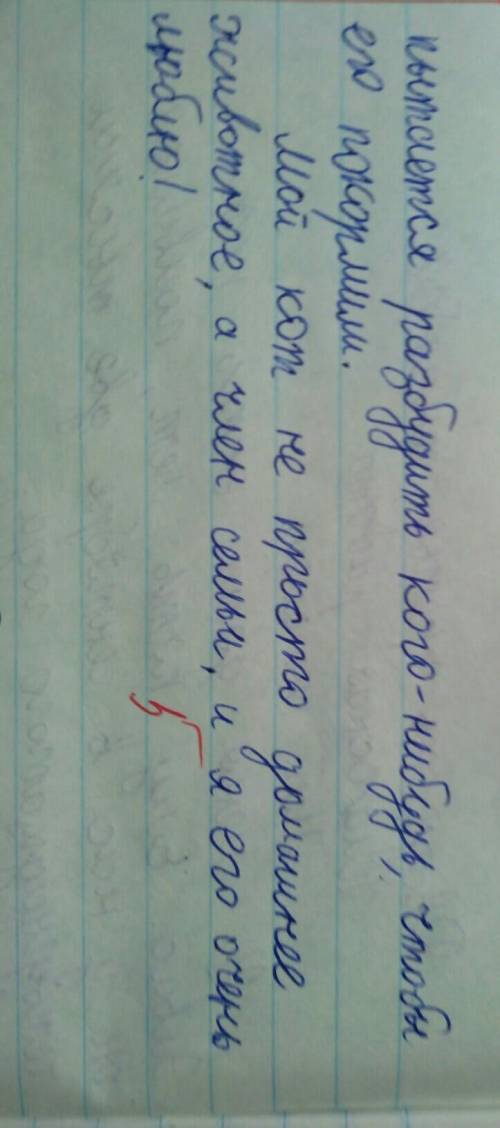 пытается разбудить кого-нибудь, чтобы
его покормили.
Мой кот не просто домашнее
животное, а член семьи, и я его очень
люблю!
5